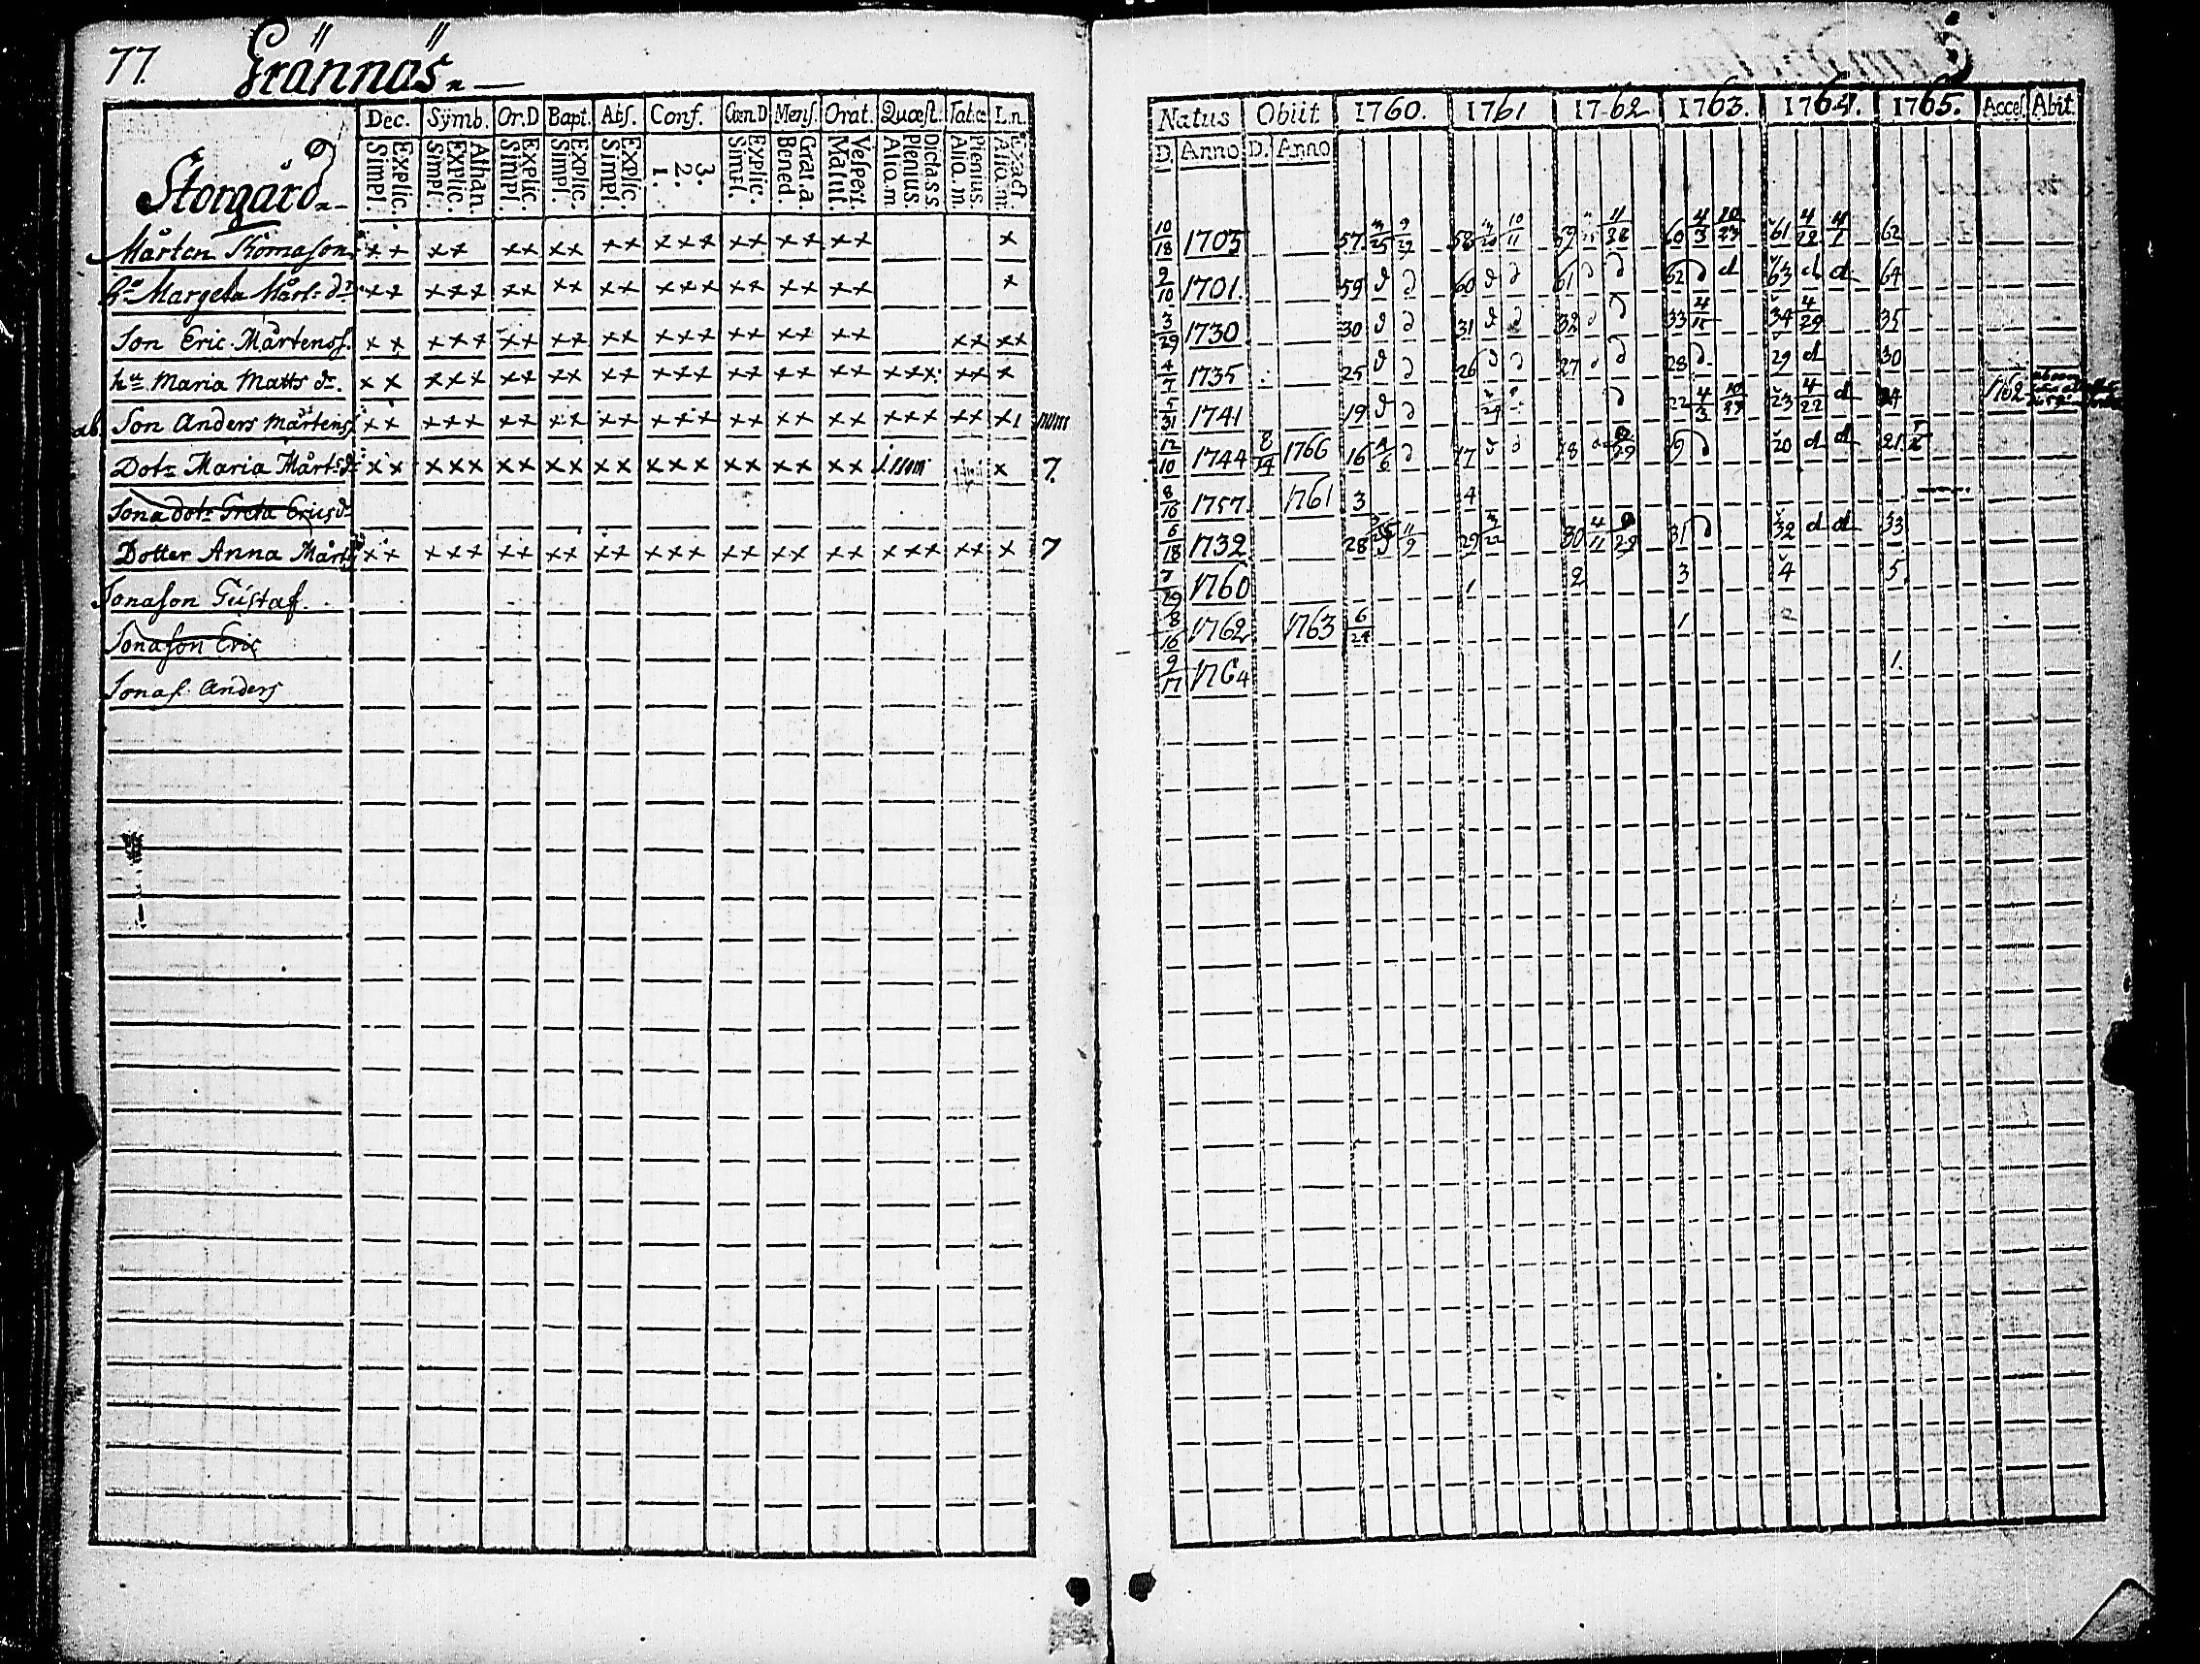 77. Grännäs.
Dec. Symb. Or.D Bapt. Abs. Conf. Cœn.D Mens. Orat. Quæst. Tab.œ L.n.
Explic. Simpl. Athan. Explic. Simpl. Explic. Simpl. Explic. Simpl. Explic. Simpl. 3. 2. 1. Explic. Simpl. Grat.a. Bened. Vespert. Matut. Dicta s s. Plenius. Aliq.m Plenius. Aliq.m. Exact Aliq.m
Storgård
Natus Obiit 1760. 1761 1762 1763. 1764. 1765. Acces Abit.
D. Anno D. Anno
Mårten Thomason x x x x x x x x x x x x x x x x x x x x
10/18 1703 57 58 59 60 4/3 10/23 61 4/22 4/1 62
h:u Margeta Mårt: dr x x x x x x x x x x x x x x x x x x x x x
9/10 1701. 59 60 61 62 d 63 d d 64
Son Eric Mårtenss. x x x x x x x x x x x x x x x x x x x x x x x x
3/29 1730 30 31 32 33 34 4/29 35
hu Maria Matts dr. x x x x x x x x x x x x x x x x x x x x x x x x x x
4/7 1735 25 26 27 28 29 d 30
ab Son Anders Mårtens x x x x x x x x x x x x x x x x x x x x x x x x x
5/31 1741 19 22 4/3 23 4/22 d 24 1762
Dotr Maria Mårts dr x x x x x x x x x x x x x x x x x x x x x 7.
12/10 1744 8/14 1766 16 17 18 19 20 d d 21
Sonadotr Greta Ericsd
8/16 1757. 1761 3 4
Dotter Anna Mårts x x x x x x x x x x x x x x x x x x x x x x x x x x x 7
6/18 1732 28 11/9 29 30 31 32 d d 33
Sonason Gustaf.
7/29 1760 1 2 3 4 5
Sonason Eric
8/16 1762 1763 6/24 1 2
Sonas. Anders
9/17 1764 1.